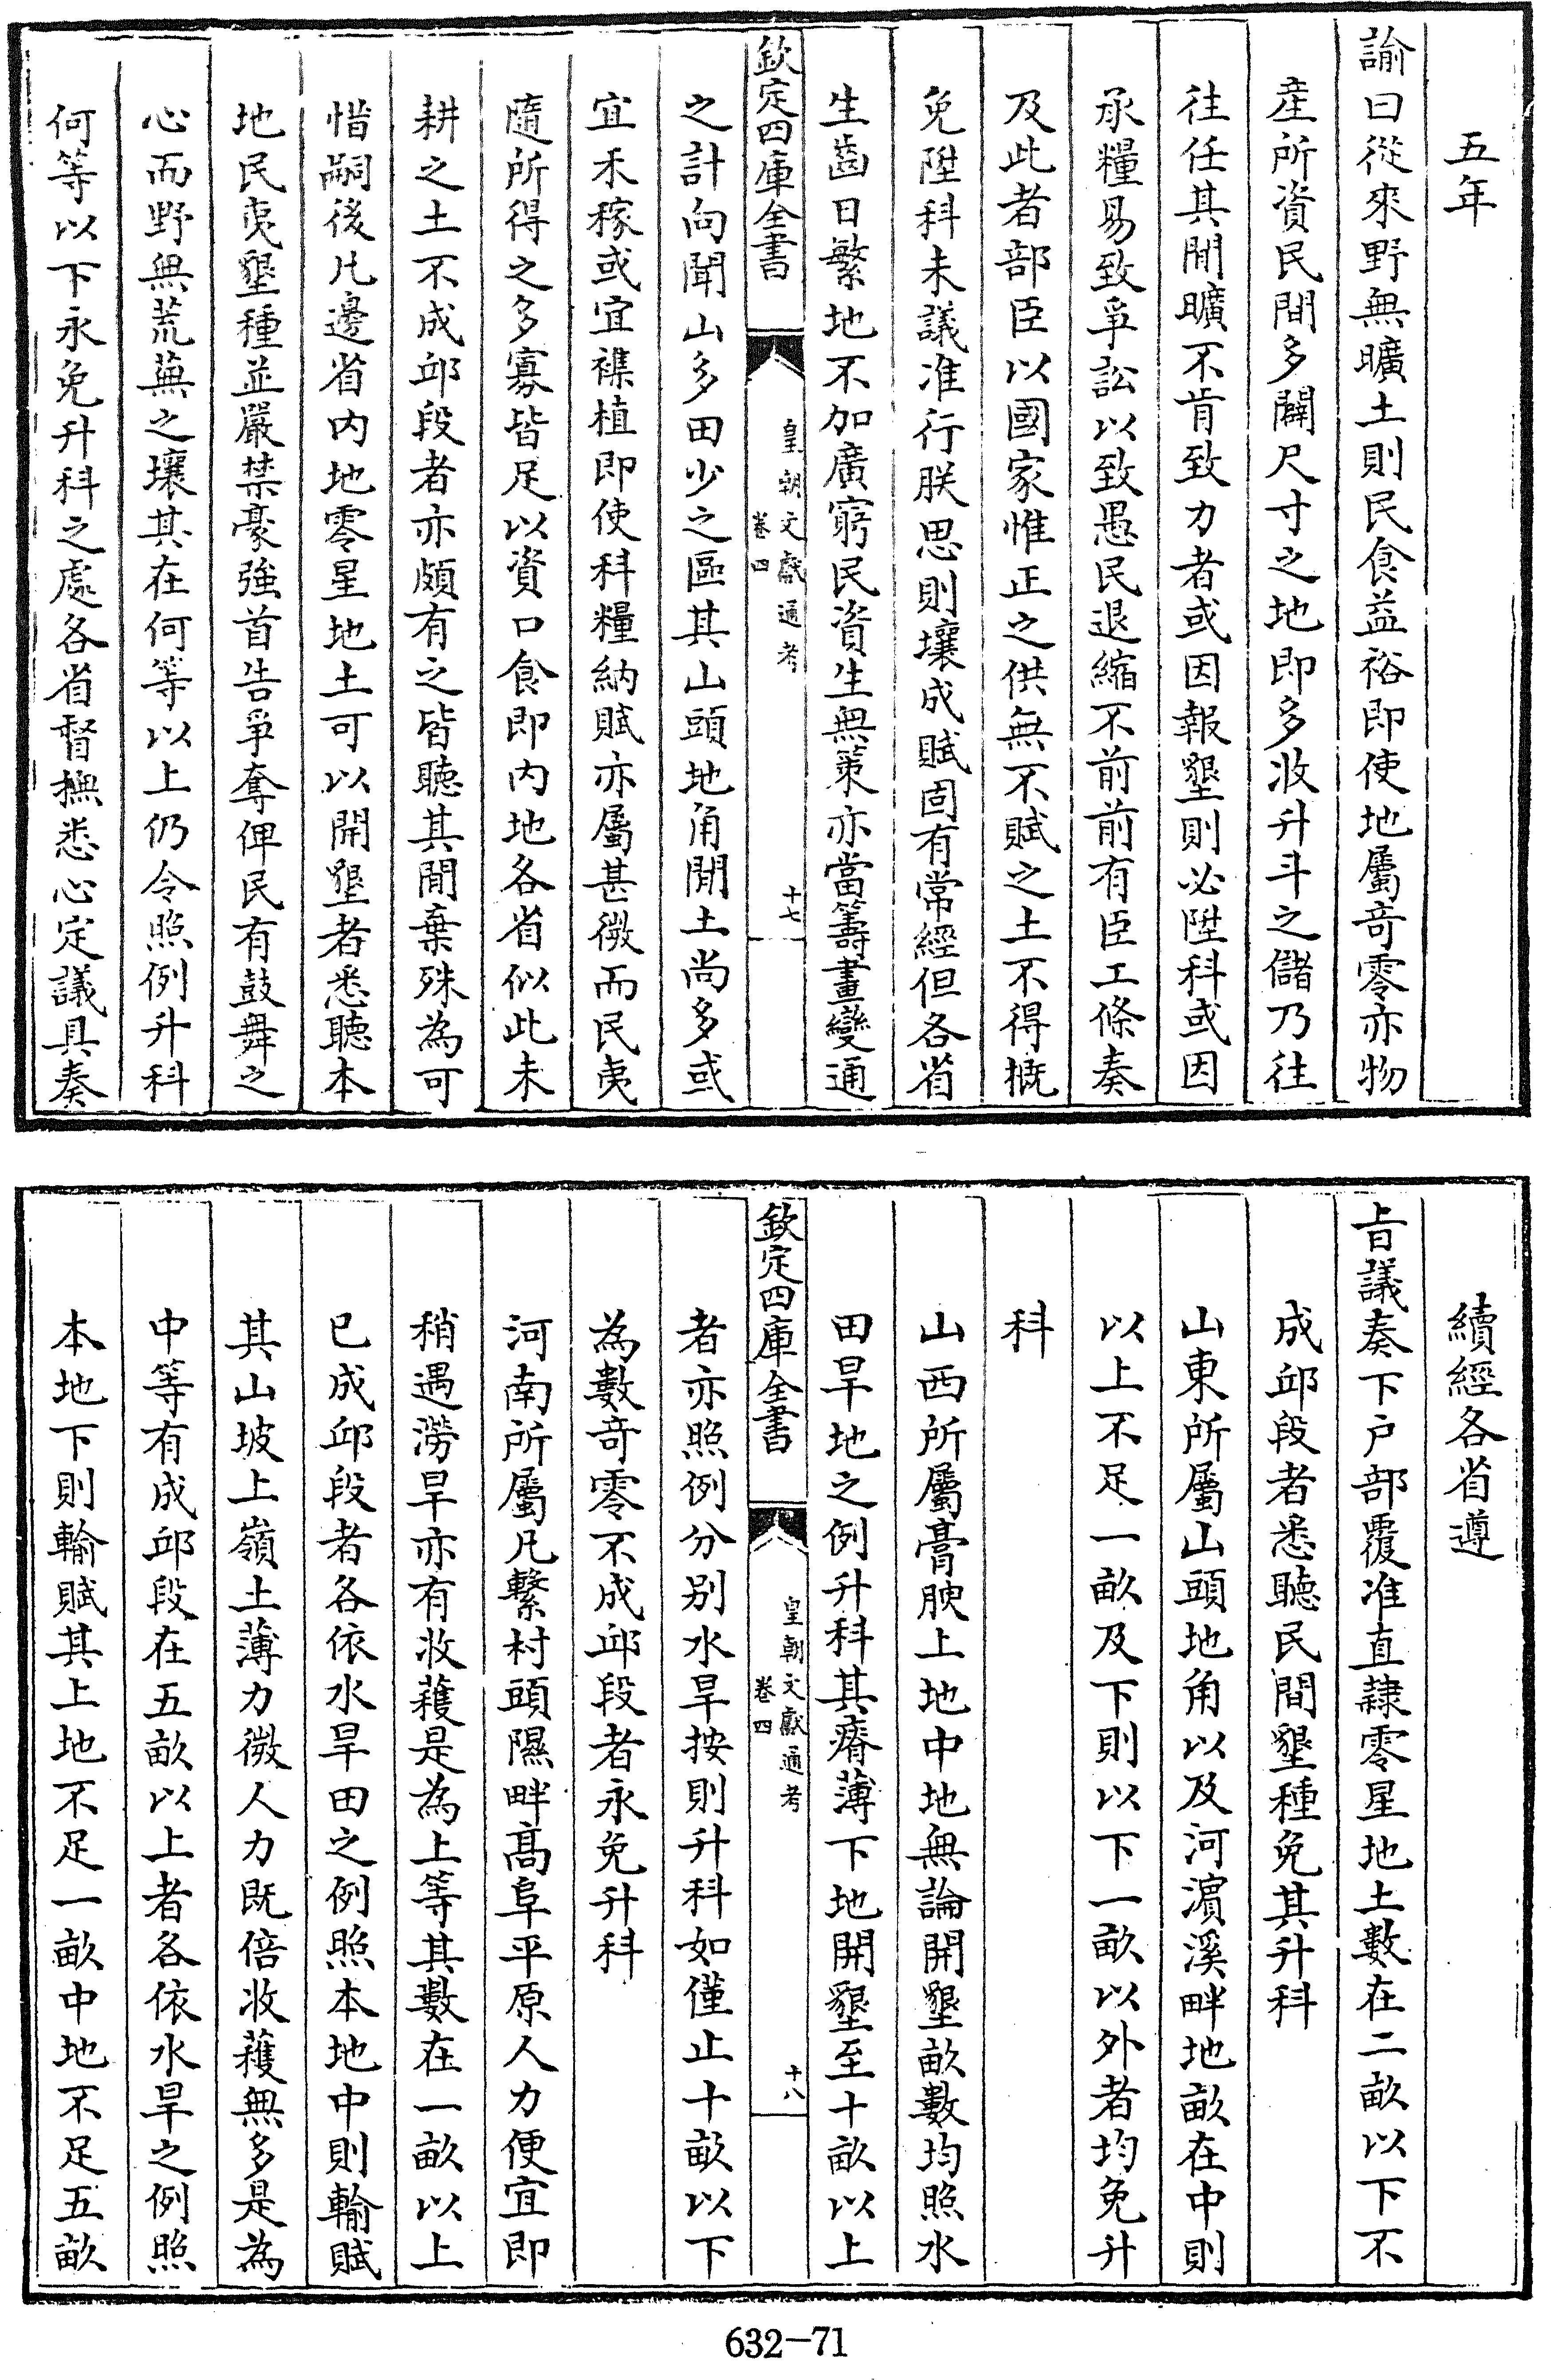 五年
諭曰從來野無曠土則民食益裕即使地屬竒零亦物
産所資民間多闢尺寸之地即多收升斗之儲乃往
往任其閒曠不肯致力者或因報墾則必陞科或因
承糧易致爭訟以致愚民退縮不前前有臣工條奏
及此者部臣以國家惟正之供無不賦之土不得槪
免陞科未議准行朕思則壤成賦固有常經但各省
生齒日繁地不加廣窮民資生無策亦當籌畫變通
欽定四庫全書
皇朝文獻通考
卷四
十七
之計向聞山多田少之區其山頭地角閒土尚多或
宜禾稼或宜襍植即使科糧納賦亦屬甚微而民夷
隨所得之多寡皆足以資口食即内地各省似此未
耕之土不成邱段者亦頗有之皆聽其閒棄殊為可
惜嗣後凡邊省内地零星地土可以開墾者悉聽本
地民夷墾種並嚴禁豪強首告爭奪俾民有鼓舞之
心而野無荒蕪之壤其在何等以上仍令照例升科
何等以下永免升科之處各省督撫悉心定議具奏
續經各省遵
旨議奏下户部覆准直隷零星地土數在二畝以下不
成邱段者悉聽民間墾種免其升科
山東所屬山頭地角以及河濵溪畔地畝在中則
以上不足一畝及下則以下一畝以外者均免升
科
山西所屬膏腴上地中地無論開墾畝數均照水
田旱地之例升科其瘠薄下地開墾至十畝以上
欽定四庫全書
皇朝文獻通考
卷四
十八
者亦照例分别水旱按則升科如僅止十畝以下
為數竒零不成邱段者永免升科
河南所屬凡繫村頭隰畔髙阜平原人力便宜即
稍遇澇旱亦有收穫是為上等其數在一畝以上
已成邱段者各依水旱田之例照本地中則輸賦
其山坡上嶺土薄力微人力既倍收穫無多是為
中等有成邱段在五畝以上者各依水旱之例照
本地下則輸賦其上地不足一畝中地不足五畝
632-71